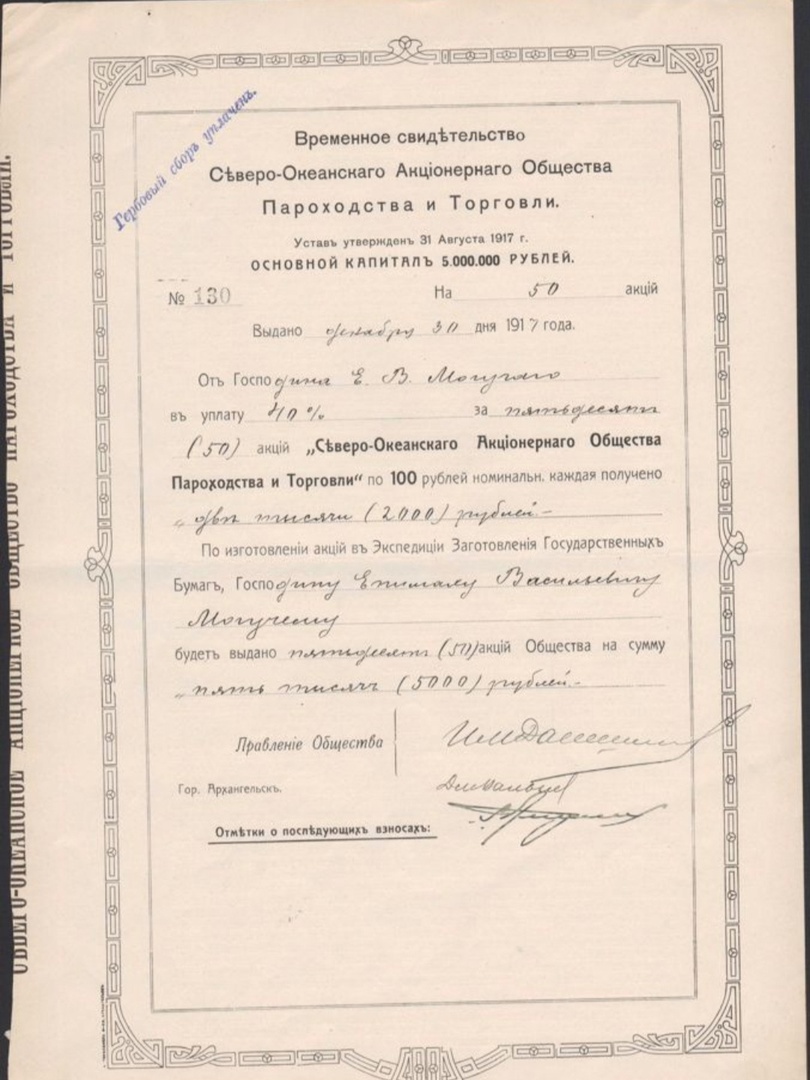 Гербовый сборъ уплаченъ.
Временное свидѣтельство
Сѣверо-Океанскаго Акціонернаго Общества
Пароходства и Торговли.
Уставъ утвержденъ 31 Августа 1917 г.
ОСНОВНОЙ КАПИТАЛЪ 5.000.000 РУБЛЕЙ.
№ 130 На 50 акцій
Выдано декабру 30 дня 1917 года.
Отъ Господина Е. В. Могучаго
въ уплату 40% за пятьдесятъ
(50) акцій „Сѣверо-Океанскаго Акціонернаго Общества
Пароходства и Торговли" по 100 рублей номинальн. каждая получено
„двѣ тысячи (2000) рублей.-
По изготовленіи акцій въ Экспедиціи Заготовленія Государственныхъ
Бумаг, Господину Епимаху Васильевичу
Могучему
будетъ выдано пятьдесятъ (50) акцій Общества на сумму
„пять тысячъ (5000) рублей.-
Правленіе Общества
Гор. Архангельскъ.
Отмѣтки о послѣдующихъ взносахъ:
СѢВЕРО-ОКЕАНСКОЕ АКЦІОНЕРНОЕ ОБЩЕСТВО ПАРОХОДСТВА И ТОРГОВЛИ.